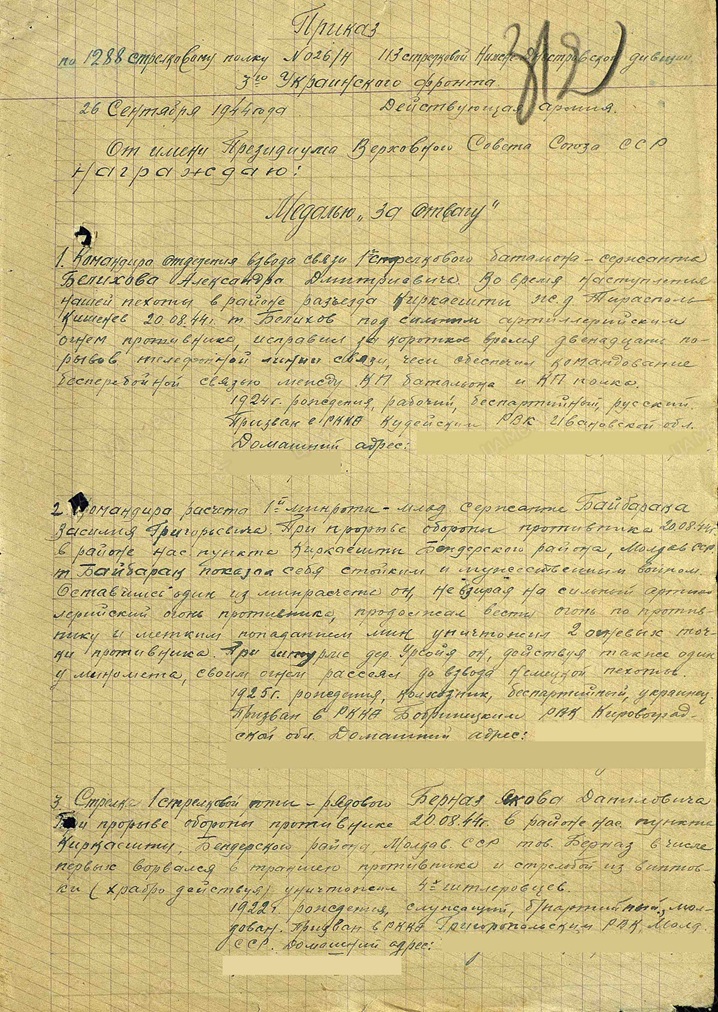 Приказ
по 1288 стрелковому полку №026/Н 113 стрелковой Нижнеднестровской дивизии
3го Украинского фронта.
26 Сентября 1944 года Действующая армия.
От имени Президиума Верховного Совета Союза ССР
награждаю:
Медалью „За Отвагу"
1. Командира отделения взвода связи 1го стрелкового батальона – сержанта
Белихова Александра Дмитриевича. Во время наступления
нашей пехоты в районе разъезда Киркаешты ж.д. Тирасполь
Кишенев 20.08.44г. т. Белихов под сильным артиллерийским
огнем противника, исправил за короткое время двенадцать по-
рывов телефонной линии связи, чем обеспечил командование
бесперебойной связью между КП батальона и КП полка.
1924г. рождения, рабочий, беспартийный, русский.
Призван в РККА РВК Ивановской обл.
Домашний адрес:
2. Командира расчета 1й минроты – млад. сержанта Байбарака
Василия Григорьевича. При прорыве обороны противника 20.08.44г.
в районе нас. пункта Киркаешты Бендерского района, Молдав ССР
т. Байбарак показал себя стойким и мужественным воином.
Оставшись один из минрасчета он, невзирая на сильный артил-
лерийский огонь противника, продолжал вести огонь по против-
нику и метким попаданием мин уничтожил 2 огневых точ-
ки противника. При штурме дер. Урсойя он, действуя также один
у миномета, своим огнем рассеял до взвода немецкой пехоты.
1925г. рождения, колхозник, беспартийный, украинец.
Призван в РККА Бобринецким РВК Кировоград-
ской обл. Домашний адрес:
3. Стрелка 1 стрелковой роты – рядового Берназ Якова Даниловича
При прорыве обороны противника 20.08.44г. в районе нас. пункта
Киркаешты, Бендерского района Молдав. ССР тов. Берназ в числе
первых ворвался в траншею противника и стрельбой из винтов-
ки (храбро действуя) уничтожил 4х гитлеровцев.
1922г. рождения, служащий, б/партийный, мол-
дован. Призван в РККА Григоропольским РВК, Молд.
ССР. Домашний адрес: